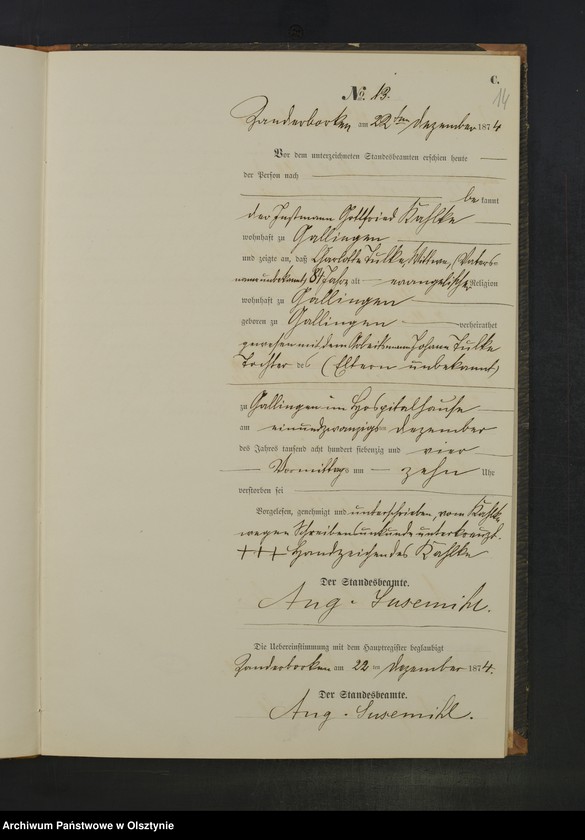 C.
14
No. 13.
Zanderborken am 22ten Dezember 1874
Vor dem unterzeichneten Standesbeamten erschien heute
der Person nach
be kannt
der Instmann Gottfried Kahlke
wohnhaft zu Gallingen
und zeigte an, daß Charlotte Tulke, Wittwe, (Vaters-
name unbekannt) 81 Jahr alt evangelischer Religion
wohnhaft zu Gallingen
geboren zu Gallingen verheirathet
gewesen mit dem Arbeitsmann Johann Tulke
Tochter des (Eltern unbekannt)
zu Gallingen im Hospitalhause
am einundzwanzigsten Dezember
des Jahres tausend acht hundert siebenzig und vier
Vormittags um zehn Uhr
verstorben sei
Vorgelesen, genehmigt und unterschrieben, vom Kahlke
wegen Schreibensunkunde unterkreuzt.
+++ Handzeichen des Kahlke
Der Standesbeamte.
Aug. Susemihl.
Die Uebereinstimmung mit dem Hauptregister beglaubigt
Zanderborken am 22 ten Dezember 1874.
Der Standesbeamte.
Aug. Susemihl.
Archiwum Państwowe w Olsztynie